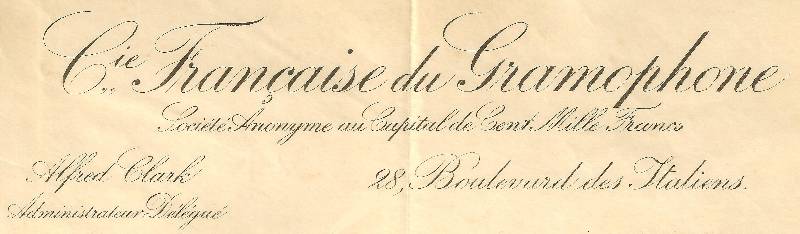 Cie Française du Gramophone
Société Anonyme au Capital de Cent Mille Francs
Alfred Clark
Administrateur Délégué
28, Boulevard des Italiens.